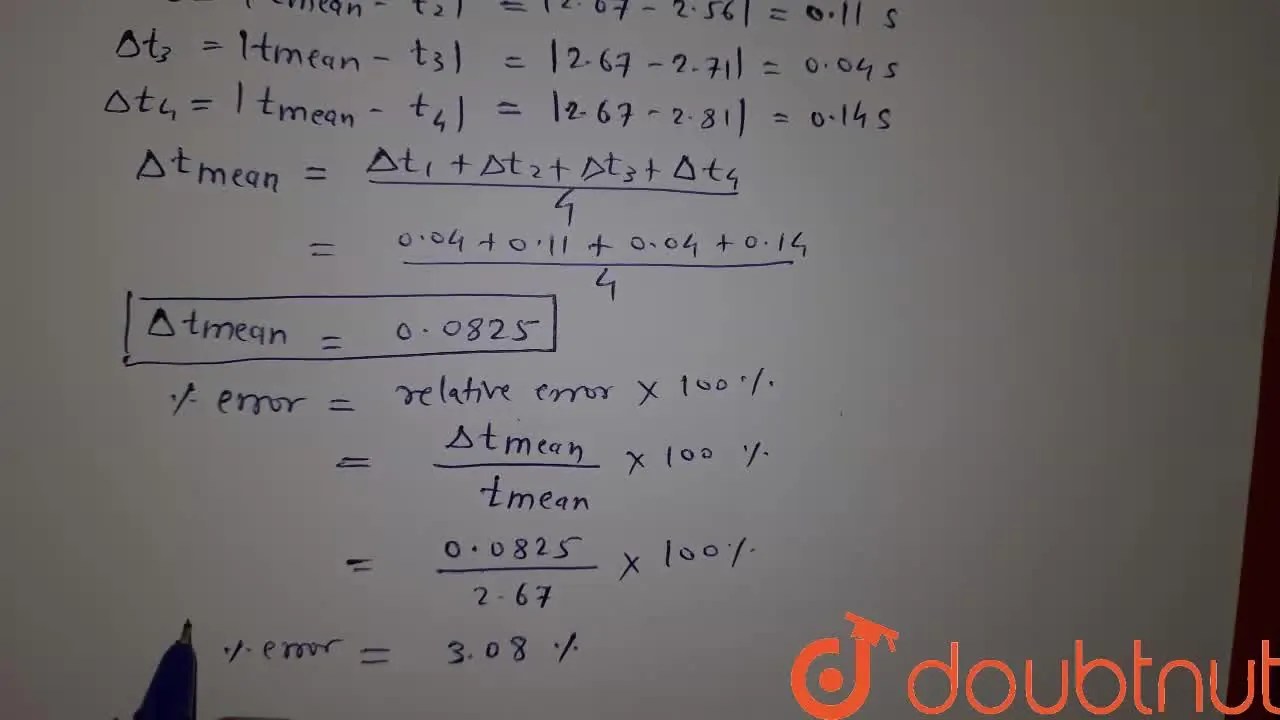 |tmean - t2| = |2.67 - 2.56| = 0.11 s
Δt3 = |tmean - t3| = |2.67 - 2.71| = 0.04 s
Δt4 = |tmean - t4| = |2.67 - 2.81| = 0.14 s
Δtmean = Δt1 + Δt2 + Δt3 + Δt4
4
= 0.04 + 0.11 + 0.04 + 0.14
4
Δtmean = 0.0825
% error = relative error × 100 %
= Δtmean × 100 %
tmean
= 0.0825 × 100 %
2.67
% error = 3.08 %
doubtnut